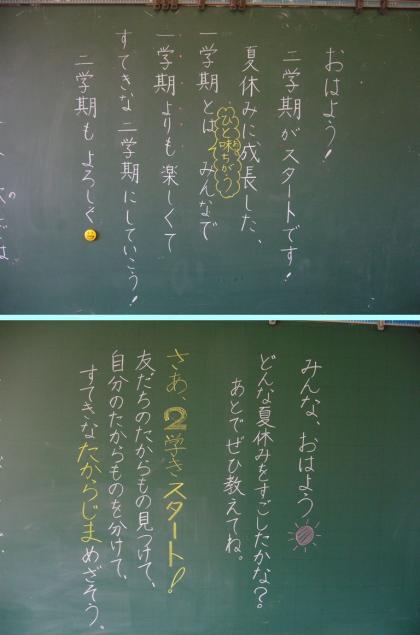 おはよう!
二学期がスタートです!
夏休みに成長した、
ひと味ちがう
一学期とは みんなで
一学期よりも楽しくて
すてきな二学期にしていこう!
二学期も よろしく
みんな、おはよう
どんな夏休みをすごしたかな?
あとでぜひ教えてね。
さあ、2学きスタート!
友だちのたからもの見つけて、
自分のたからものを分けて、
すてきなたからじまめざそう。